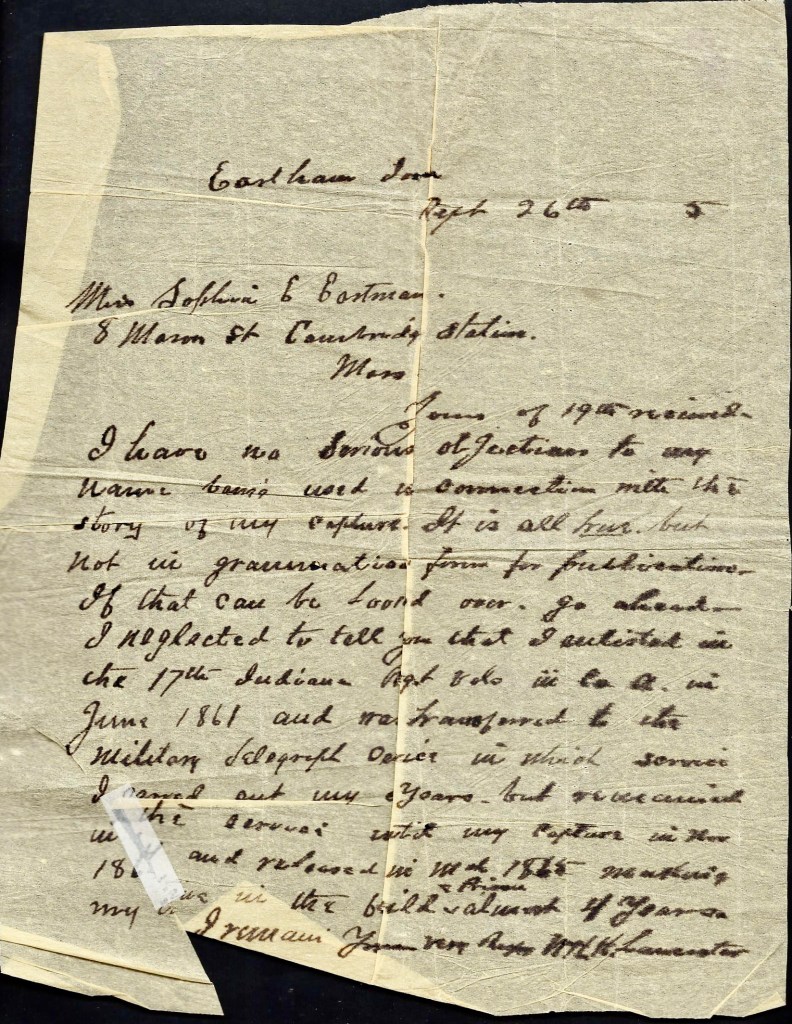 Eastham Iowa
Sept 26th 5
Miss Sophia E Eastman.
8 Mason St Cambridg Station.
Mass
Yours of 19th recieved-
I have no serious objections to my
name being used in connection with the
story of my capture. It is all true. but
not in grammatical form for publication-
If that can be looked over. go ahead-
I neglected to tell you that I enlisted in
the 17th Indiana Regt Vols in Co A. in
June 1861 and was transferred to the
Military Telegraph Service in which service
I served out my 3 Years. but remained
in the service until my capture in Nov
186 and released in Mch 1865 making
my in the field & Prison almost 4 Years
I remain Yours very Resp W H K